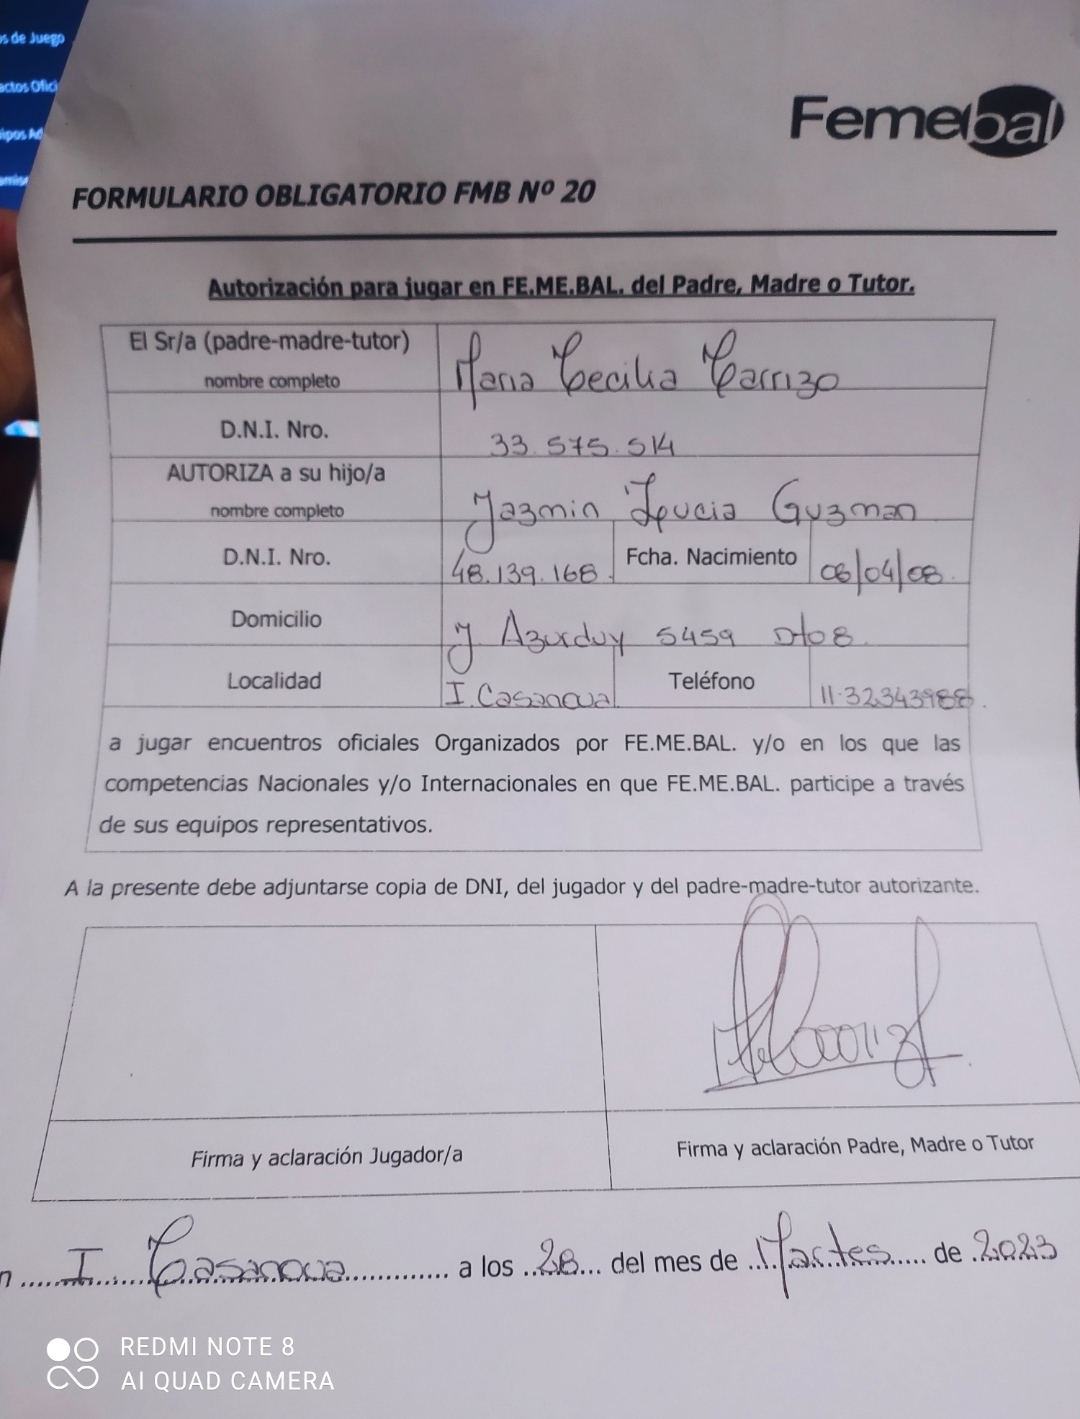 s de Juego
actos Ofici
ipos Ad
Femebal
FORMULARIO OBLIGATORIO FMB Nº 20
Autorización para jugar en FE.ME.BAL. del Padre, Madre o Tutor.
El Sr/a (padre-madre-tutor)
nombre completo
Maria Cecilia Carrizo
D.N.I. Nro.
33.575.514
AUTORIZA a su hijo/a
nombre completo
Jazmin Lucia Guzman
D.N.I. Nro. 48.139.168 Fcha. Nacimiento 06/04/08
Domicilio J. Azurduy 5459 Dto 8
Localidad I. Casanova Teléfono 11.32343988
a jugar encuentros oficiales Organizados por FE.ME.BAL. y/o en los que las
competencias Nacionales y/o Internacionales en que FE.ME.BAL. participe a través
de sus equipos representativos.
A la presente debe adjuntarse copia de DNI, del jugador y del padre-madre-tutor autorizante.
Firma y aclaración Jugador/a
Firma y aclaración Padre, Madre o Tutor
n ..... I. Casanova ............ a los ..28... del mes de ....Martes..... de .2023
REDMI NOTE 8
AI QUAD CAMERA